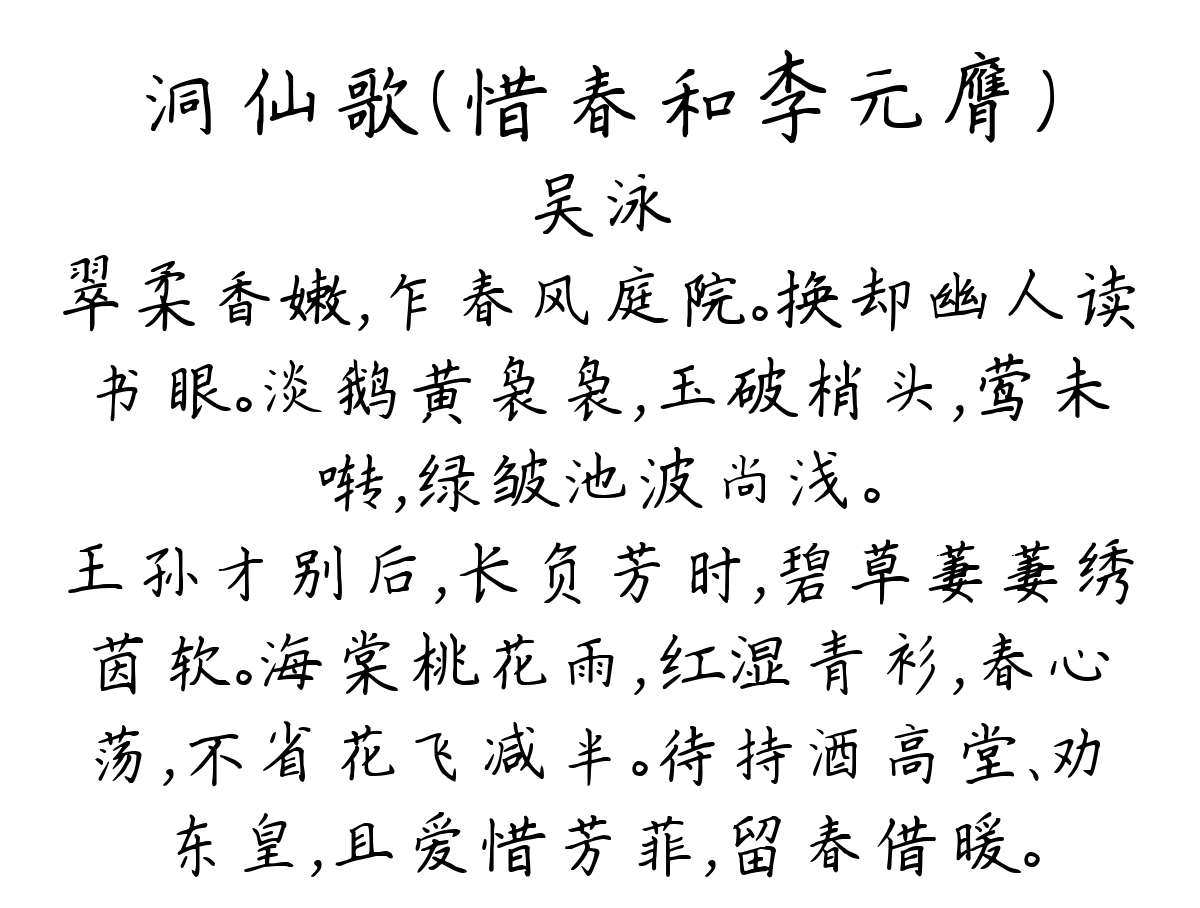 洞仙歌(惜春和李元膺)
吴泳
翠柔香嫩,乍春风庭院。换却幽人读
书眼。淡鹅黄袅袅,玉破梢头,莺未
啭,绿皱池波尚浅。
王孙才别后,长负芳时,碧草萋萋绣
茵软。海棠桃花雨,红湿青衫,春心
荡,不省花飞减半。待持酒高堂、劝
东皇,且爱惜芳菲,留春借暖。